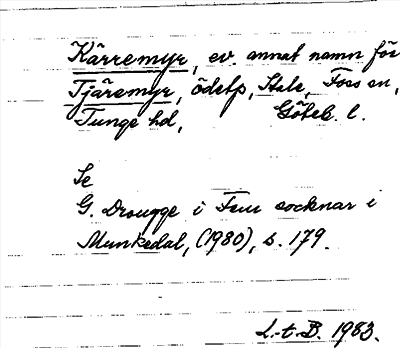 Kärremyr, ev. annat namn för
Tjäremyr, ödetp, Stale, Foss sn,
Tunge hd, Göteb. l.
Se
G. Drougge i Fem socknar i
Munkedal, (1980), s. 179.
L.t.B. 1983.